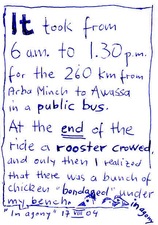 It took from
6 a.m. to 1.30 p.m.
for the 260 km from
Arba Minch to Awassa
in a public bus.
At the end of the
ride a rooster crowed,
and only then I realized
that there was a bunch of
chicken "bondaged" under
my bench.
in agony
"In agony" 17 VIII 04